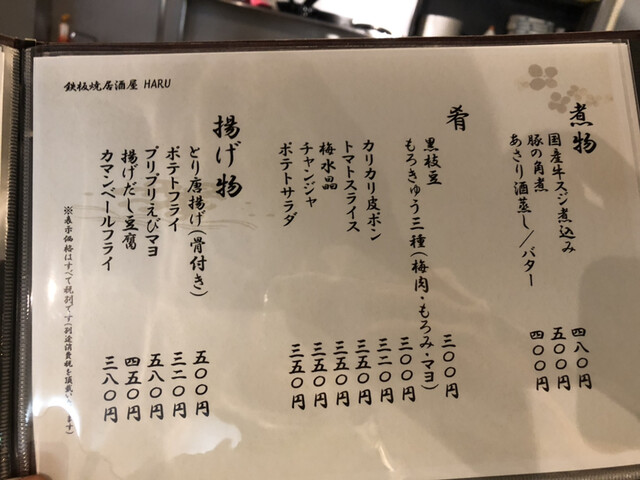 鉄板焼居酒屋 HARU
煮物
国産牛スジ煮込み 四八〇円
豚の角煮 五〇〇円
あさり酒蒸し/バター 四〇〇円
肴
黒枝豆 三〇〇円
もろきゅう三種(梅肉・もろみ・マヨ) 三〇〇円
カリカリ皮ポン 三二〇円
トマトスライス 三五〇円
梅水晶 三五〇円
チャンジャ 三五〇円
ポテトサラダ 三五〇円
揚げ物
とり唐揚げ(骨付き) 五〇〇円
ポテトフライ 三二〇円
プリプリえびマヨ 五八〇円
揚げだし豆腐 四五〇円
カマンベールフライ 三八〇円
※表示価格はすべて税別です(別途消費税を頂戴い ます)